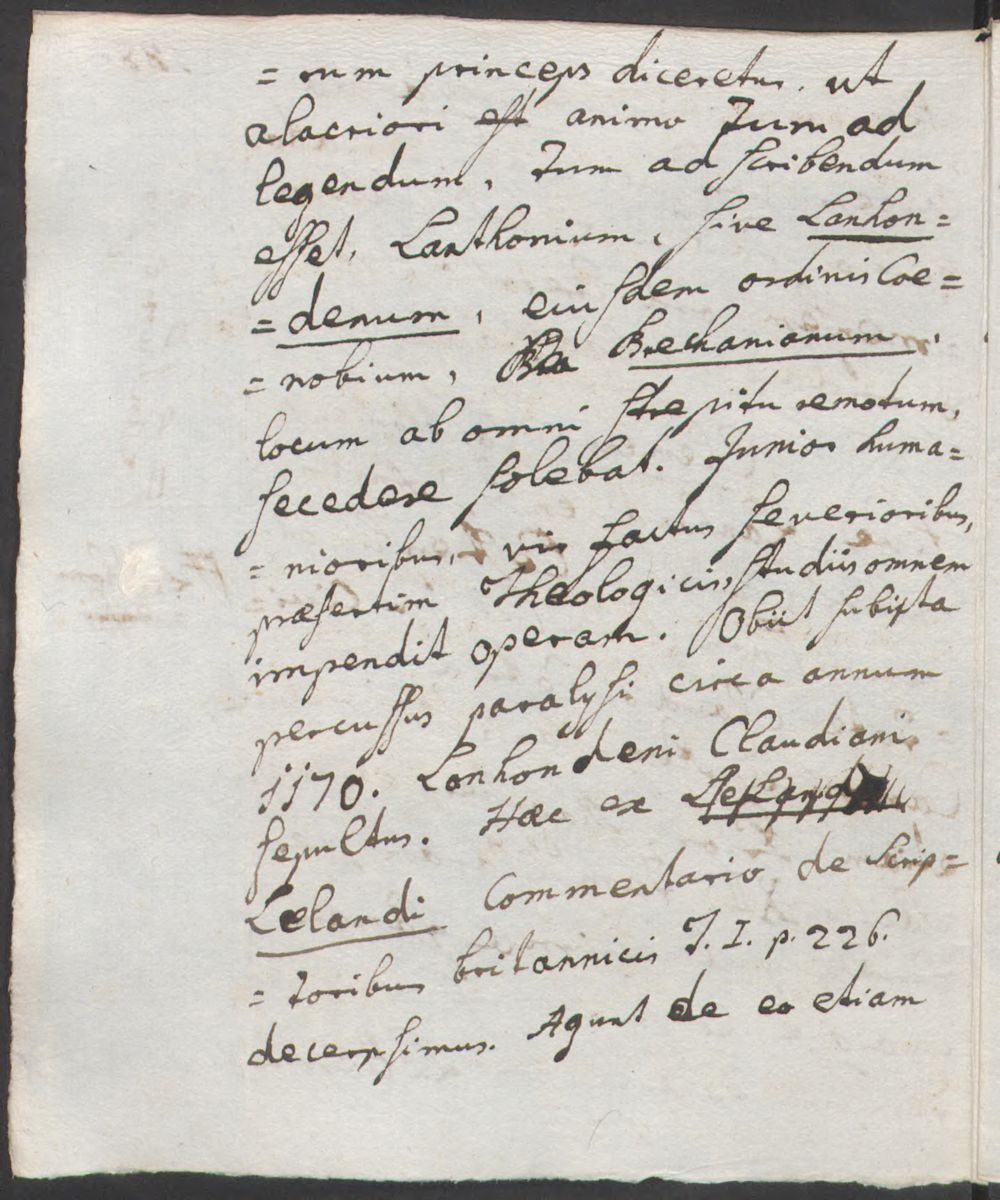 = rum princeps diceretur. ut
alacriori est animo Tum ad
legendum, Tum ad scribendum
esset, Lanthonium, sive Lanhon=
= denum, ejusdem ordinis Coe=
= nobium, Brechanianum,
locum ab omni strepitu remotum,
secedere solebat. Junior huma=
= nioribus, vir factus severioribus,
præsertim Theologicis studiis omnem
impendit operam. Obiit subista
percussus paralysi circa annum
1170. Lanhondeni Claudiani
sepultus. Hæc ex
Lelandi Commentario de Scrip=
= toribus britannicis T. I. p. 226.
decerpsimus. Agunt de eo etiam